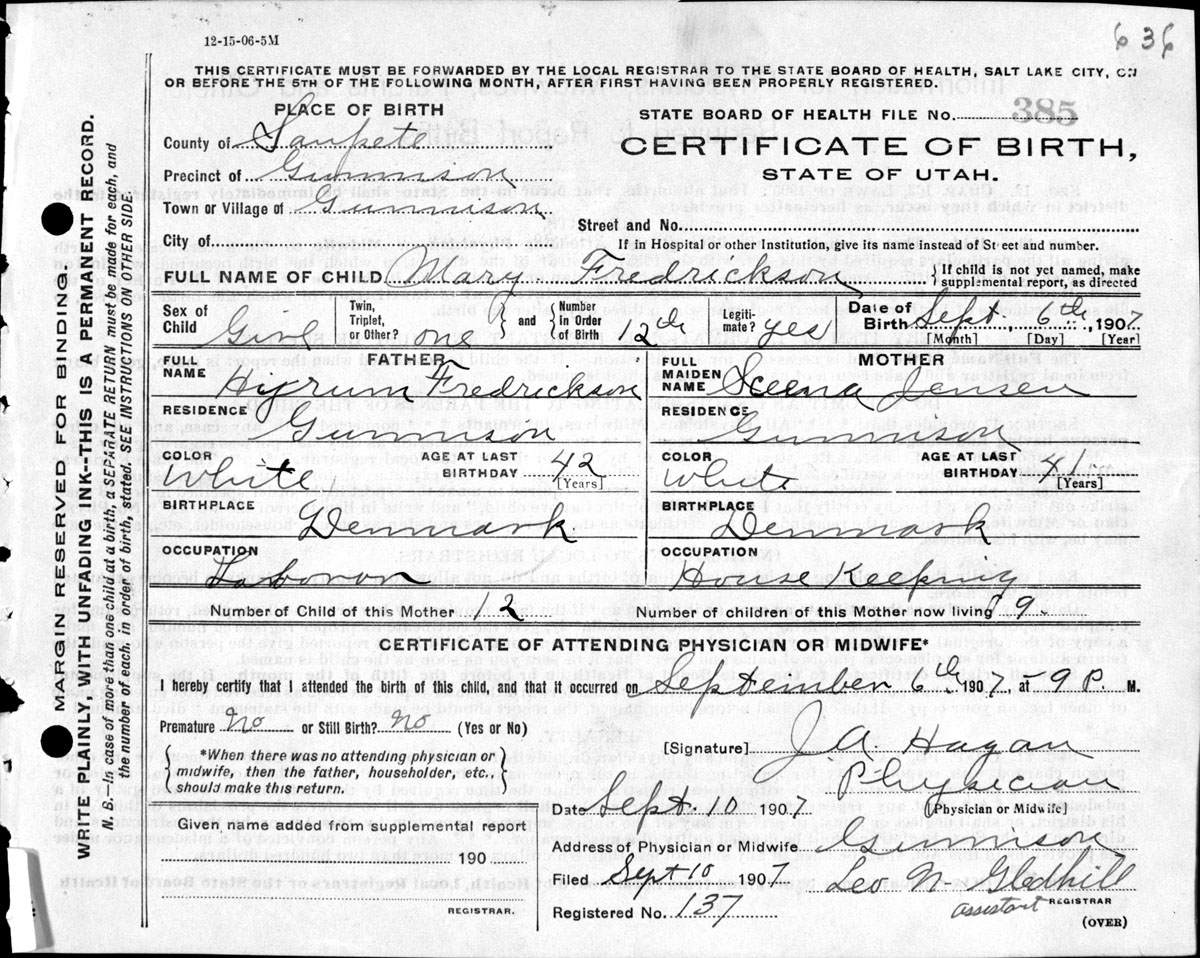 12-15-06-5M
636
THIS CERTIFICATE MUST BE FORWARDED BY THE LOCAL REGISTRAR TO THE STATE BOARD OF HEALTH, SALT LAKE CITY, ON
OR BEFORE THE 5TH OF THE FOLLOWING MONTH, AFTER FIRST HAVING BEEN PROPERLY REGISTERED.
PLACE OF BIRTH
County of Sanpete
Precinct of Gunnison
Town or Village of Gunnison
City of
STATE BOARD OF HEALTH FILE No. 385
CERTIFICATE OF BIRTH,
STATE OF UTAH.
Street and No.
If in Hospital or other Institution, give its name instead of Street and number.
FULL NAME OF CHILD Mary Fredrickson } If child is not yet named, make
supplemental report, as directed
Sex of Child Girl Twin, Triplet, or Other? one { and } Number in Order of Birth 12th Legiti-mate? yes Date of Birth Sept. 6th, 1907
[Month] [Day] [Year]
FATHER
FULL NAME Hyrum Fredrickson
RESIDENCE Gunnison
COLOR White AGE AT LAST BIRTHDAY 42
[Years]
BIRTHPLACE Denmark
OCCUPATION Laboror
MOTHER
FULL MAIDEN NAME Seena Jensen
RESIDENCE Gunnison
COLOR White AGE AT LAST BIRTHDAY
[Years]
BIRTHPLACE Denmark
OCCUPATION House Keeping
Number of Child of this Mother 12
Number of children of this Mother now living 9.
CERTIFICATE OF ATTENDING PHYSICIAN OR MIDWIFE*
I hereby certify that I attended the birth of this child, and that it occurred on September 6th 1907, at 9 P. M.
Premature No or Still Birth? No (Yes or No)
(*When there was no attending physician or
midwife, then the father, householder, etc.,
should make this return.)
Given name added from supplemental report
190
REGISTRAR.
[Signature] J A. Hagan
Physician
Date Sept. 10 1907 (Physician or Midwife)
Address of Physician or Midwife Gunnison
Filed Sept 10 1907 Leo N. Gledhill
assistant REGISTRAR
Registered No. 137
(OVER)
MARGIN RESERVED FOR BINDING.
WRITE PLAINLY WITH UNFADING INK--THIS IS A PERMANENT RECORD.
N. B.--In case of more than one child at a birth, a SEPARATE RETURN must be made for each, and
the number of each, in order of birth, stated. SEE INSTRUCTIONS ON OTHER SIDE.